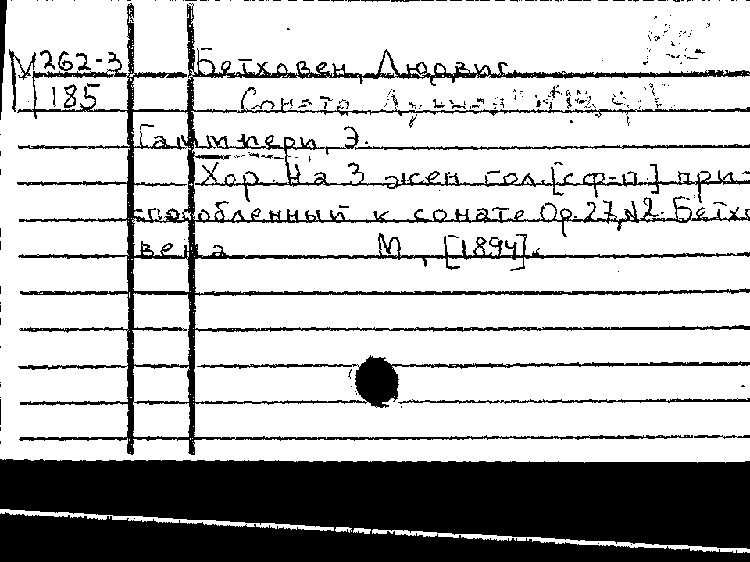 М 262-3 Бетховен, Людвиг.
185 Соната Лунная"
Гаммпери, Э.
Хор на 3 жен гол. [с ф-п.] при-
способленный к сонате Op. 27, N2. Бетхо
вена М., [1894].